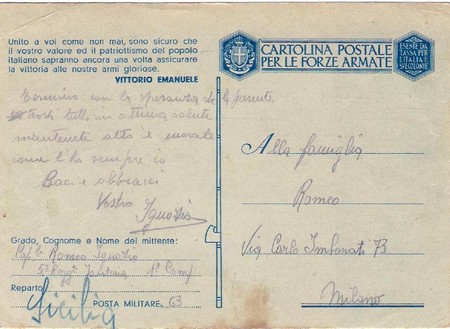 Unito a voi come non mai, sono sicuro che
il vostro valore ed il patriottismo del popolo
italiano sapranno ancora una volta assicurare
la vittoria alle nostre armi gloriose.
VITTORIO EMANUELE
Termino con la speranza che la presente
trovi tutti in ottima salute
mantenete alto il morale
come l'ho sempre io
Baci e abbracci
Vostro Ignazio
Grado, Cognome e Nome del mittente:
Romeo Ignazio
5° Regg. Fanteria 1ª Comp
Reparto
Sicilia
POSTA MILITARE, 63
CARTOLINA POSTALE
PER LE FORZE ARMATE
ESENTE DA
TASSA PER
L'ITALIA E
SUE COLONIE
Alla famiglia
Romeo
Via Carlo 73
Milano